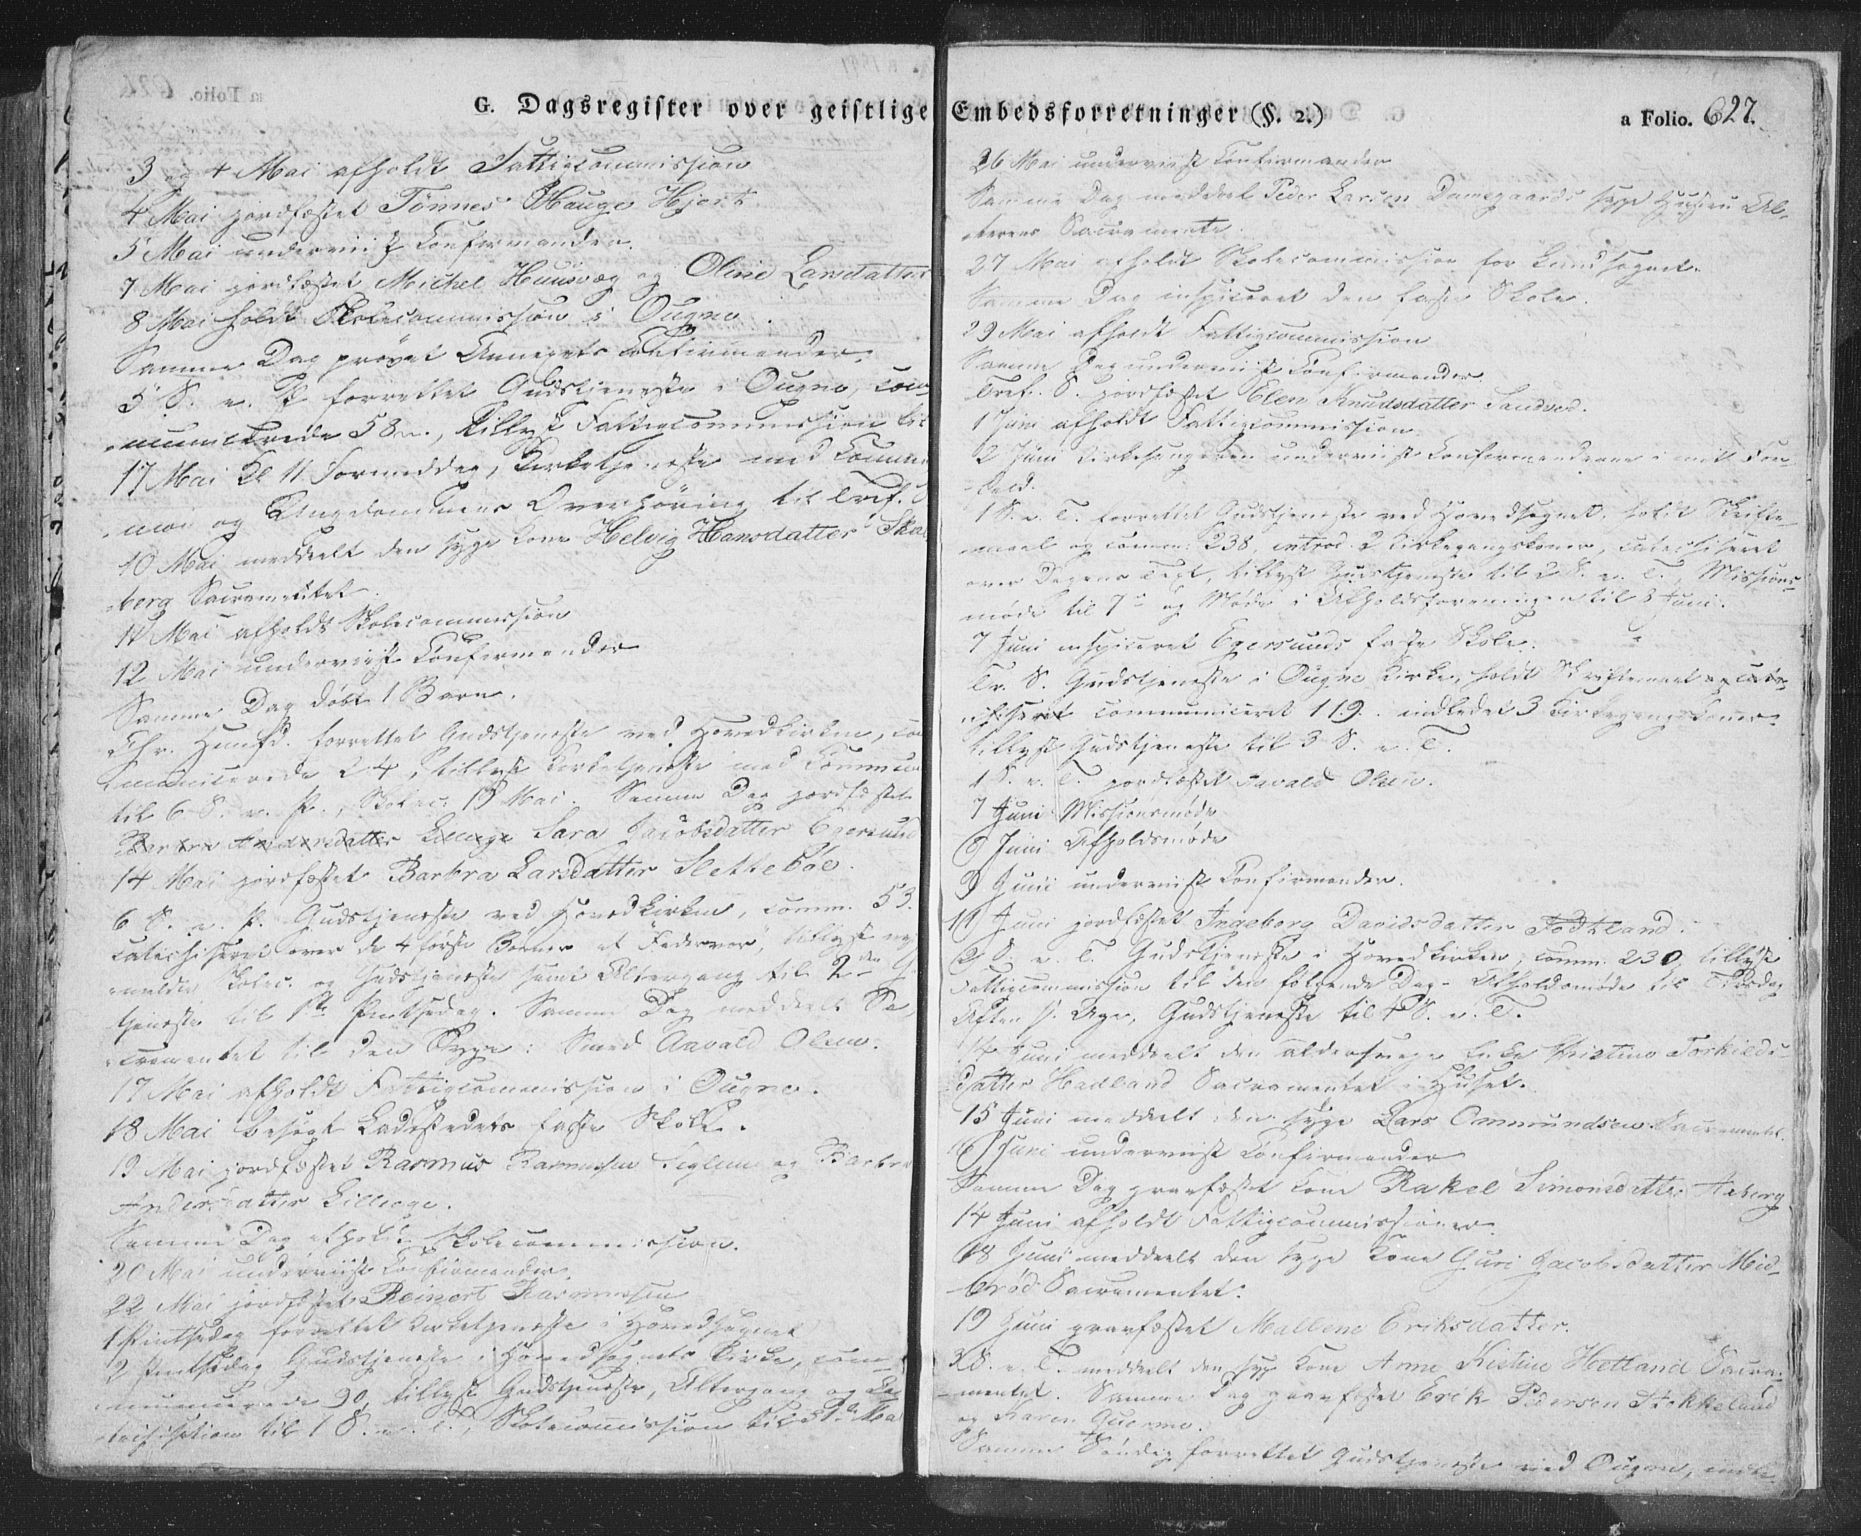 G. Dagsregister over geistlige Embedsforretninger (§. 2.)
a Folio. 627.
3 og 4 Mai afholdt Fattigcommission
4 Mai jordfæstet Tønnes Hauge Hjort.
5 Mai underviist Confirmander.
7 Mai jordfæstet Michel Huusvæg og Oline Larsdatter
8 Mai holdt Skolecommission i Ougne.
Samme Dag prøvet Annexets Confirmander.
5 S. e. P. forrettet Gudstjeneste i Ougne, com-
municerede 58, tillyst Fattigcommission til
17 Mai Kl 11 Formiddag, Kirketjeneste med Commu-
nion og Ungdommens Overhøring til Tref. S
10 Mai meddeelt den syge Kone Helvig Hansdatter Skad-
berg Sacramentet.
11 Mai afholdt Skolecommission
12 Mai underviist Confirmander
Samme Dag døbt 1 Barn.
Chr. Himfd. forrettet Gudstjeneste ved Hovedkirken, co
municerede 24, tillyst Kirketjeneste med Commun
til 6 S. e. P., Skolec. 18 Mai. Samme Dag jordfæstet
Barbra Andersdatter Lilleøge Sara Jacobsdatter Egersund
14 Mai jordfæstet Barbra Larsdatter Slettebøe.
6 S. e. P. Gudstjeneste ved Hovedkirken, comm. 53.
catechiseret over de 4 første Bønner af "Fadervor", tillyst
melde Skolec. og Gudstjeneste samt Altergang til 2den
tjeneste til 1ste Pintsedag. Samme Dag meddeelt Sa-
cramentet til den Syge: Smed Aavald Olsen.
17 Mai afholdt Fattigcommission i Ougne.
18 Mai besøgt Ladestedets faste Skole.
19 Mai jordfæstet Rasmus Rasmussen og Barbra
Andersdatter Lilleøge.
Samme Dag afholdt Skolecommission.
20 Mai underviist Confirmander.
22 Mai jordfæstet Reinert Rasmussen
1 Pintsedag forrettet Kirketjeneste i Hovedsognet
2 Pintsedag Gudstjeneste i Hovedsognets Kirke, com-
municerede 90, tillyst Gudstjeneste, Altergang og Ca-
techisation til 1 S. e. T., Skolecommission til Mai
26 Mai underviist Confirmander
Samme Dag meddeelt Peder Larsen Damsgaards syge Hustru Al-
terens Sacramente.
27 Mai afholdt Skolecommission for Landsognet.
Samme Dag inspiceret den faste Skole.
29 Mai afholdt Fattigcommission
Samme Dag underviist Confirmander
Tref. S. jordfæstet Elen Knudsdatter Sandved.
1 Juni afholdt Fattigcommission
2 Juni Kirkesangeren underviist Confirmanderne i mit For-
fald.
1 S. e. T. forrettet Gudstjeneste ved Hovedsognet holdt Skrifte-
maal og comm: 238, introd. 2 Kirkegangskoner, catechiseret
over Dagens Text, tillyst Gudstjeneste til 2 S. e. T., Missions-
møde til 7de og Møde i Afholdsforeningen til 8 Juni.
7 Juni inspiceret Egersunds faste Skole.
Tr. S. Gudstjeneste i Ougne Kirke, holdt Skriftemaal og cate-
chiseret communiceret 119. indledet 3 Kirkegangskoner
tillyst Gudstjeneste til 3 S. e. T.
1 S. e. T. jordfæstet Aavald Olsen.
7 Juni Missionsmøde
8 Juni Afholdsmøde
9 Juni underviist Confirmander.
11 Juni jordfæstet Ingeborg Davidsdatter Fodtland.
2 S. e. T. Gudstjeneste i Hovedkirken, comm. 230, tillyst
Fattigcommission til den følgende Dag - Afholdsmøde til Tirsdag
Aften s. Uge, Gudstjeneste til 4 S. e. T.
14 Juni meddeelt den aldersvage Enke Kristine Torkilds-
datter Hadland Sacramentet i Huset.
15 Juni meddeelt den syge Lars Ommundsen Sacramentet.
16 Juni underviist Confirmander
Samme Dag gravfæstet Kone Rakel Simonsdatter Aaberg
14 Juni afholdt Fattigcommission
18 Juni meddeelt den syge Kone Guri Jacobsdatter Mid-
brød Sacramentet.
19 Juni gravfæstet Mallene Eriksdatter.
3 S. e. T. meddeelt den syge Kone Anne Kistine Hetland Sacra-
mentet. Samme Dag gravfæstet Erik Pedersen Stokkeland
og Karen Guerme.
Samme Søndag forrettet Gudstjeneste ved Ougne,